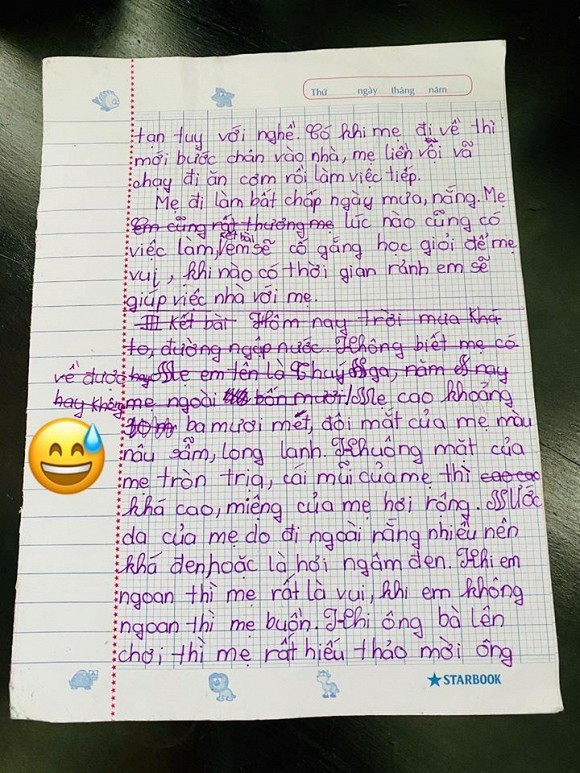 Thứ ngày tháng năm
tan tuy với nghề. Có khi mẹ đi về thì
mới bước chân vào nhà, mẹ liền vội vã
chạy đi ăn cơm rồi làm việc tiếp.
Mẹ đi làm bất chấp ngày mưa, nắng. Mẹ
Em cũng rất thương mẹ lúc nào cũng có
kết bài
việc làm, em sẽ cố gắng học giỏi để mẹ
vui, khi nào có thời gian rảnh em sẽ
giúp việc nhà với mẹ.
III Kết bài Hôm nay trời mưa khá
to, đường ngập nước. Không biết mẹ có
về được hay Mẹ em tên là Thuy Nga, năm nay
hay không mẹ ngoài bốn mươi Mẹ cao khoảng
ba mươi mét, đôi mắt của mẹ màu
nâu sẫm, long lanh. Khuông mặt của
mẹ tròn trịa, cái mũi của mẹ thì cao cao
khá cao, miệng của mẹ hơi rộng. Nước
da của mẹ do đi ngoài nắng nhiều nên
khá đen, hoặc là hơi ngâm đen. Khi em
ngoan thì mẹ rất là vui, khi em không
ngoan thì mẹ buồn. Khi ông bà lên
chơi thì mẹ rất hiếu thảo mời ông
STARBOOK